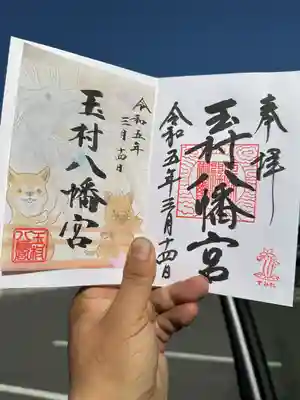 奉拝
玉村八幡宮
令和五年三月十四日
令和五年
三月十四日
玉村八幡宮